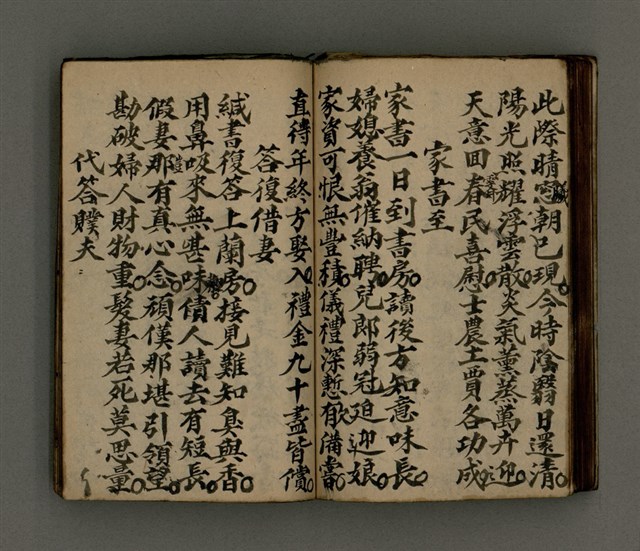 此際晴窓朝已現。今時陰翳日還清。
陽光照耀浮雲散。炎氣薰蒸萬卉迎。
天意回春民喜慰。士農工賈各功成。
家書至
家書一日到書房。讀後方知意味長。
婦媳養翁催納聘。兒郎弱冠迫迎娘。
家資可恨無豐積。儀禮深慙欲備當。
直待年終方娶入。禮金九十盡皆償。
答復借妻
緘書復答上蘭房。接見難知臭與香。
用鼻吸來無甚味。債人讀去有短長。
假妻那有真心念。頑僕那堪引領望。
勘破婦人財物重。髮妻若死莫思量。
代答贌夫